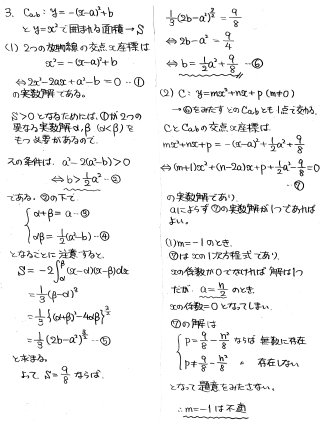 3. C_{a,b} : y = -(x-a)²+b
と y=x² で囲まれる面積 → S
(1) 2つの放物線の交点 x座標は
x² = -(x-a)²+b
⇔ 2x²-2ax+a²-b=0 …①
の実数解である。
S>0となるためには、①が2つの
異なる実数解α,β (α<β) を
もつ必要があるので
その条件は、a²-2(a²-b)>0
⇔ b>½a² …②
である。②の下で
{ α+β=a …③
{ αβ=½(a²-b) …④
となることに注意すると、
S = -2∫_α^β (x-α)(x-β)dx
= ⅓(β-α)³
= ⅓{(α+β)²-4αβ}^{3/2}
= ⅓(2b-a²)^{3/2} …⑤
と求まる。
よって S=9/8 ならば、
⅓(2b-a²)^{3/2} = 9/8
⇔ 2b-a² = 9/4
⇔ b=½a²+9/8 …⑥
(2) C : y=mx²+nx+p (m≠0)
→ ⑥をみたすどのC_{a,b}とも1点で交わる。
CとC_{a,b}の交点x座標は
mx²+nx+p = -(x-a)²+½a²+9/8
⇔ (m+1)x²+(n-2a)x+p+½a²-9/8=0
…⑦
の実数解であり、
aによらず⑦の実数解が1つであれば
よい。
(i) m=-1のとき、
⑦はxの1次方程式であり、
xの係数が0でなければ解は1つ
だが、a=n/2 のとき、
xの係数=0となってしまい、
⑦の解は
{ p=9/8-n²/8 ならば 無数に存在
{ p≠9/8-n²/8 〃 存在しない
となって題意をみたさない。
∴ m=-1は不適